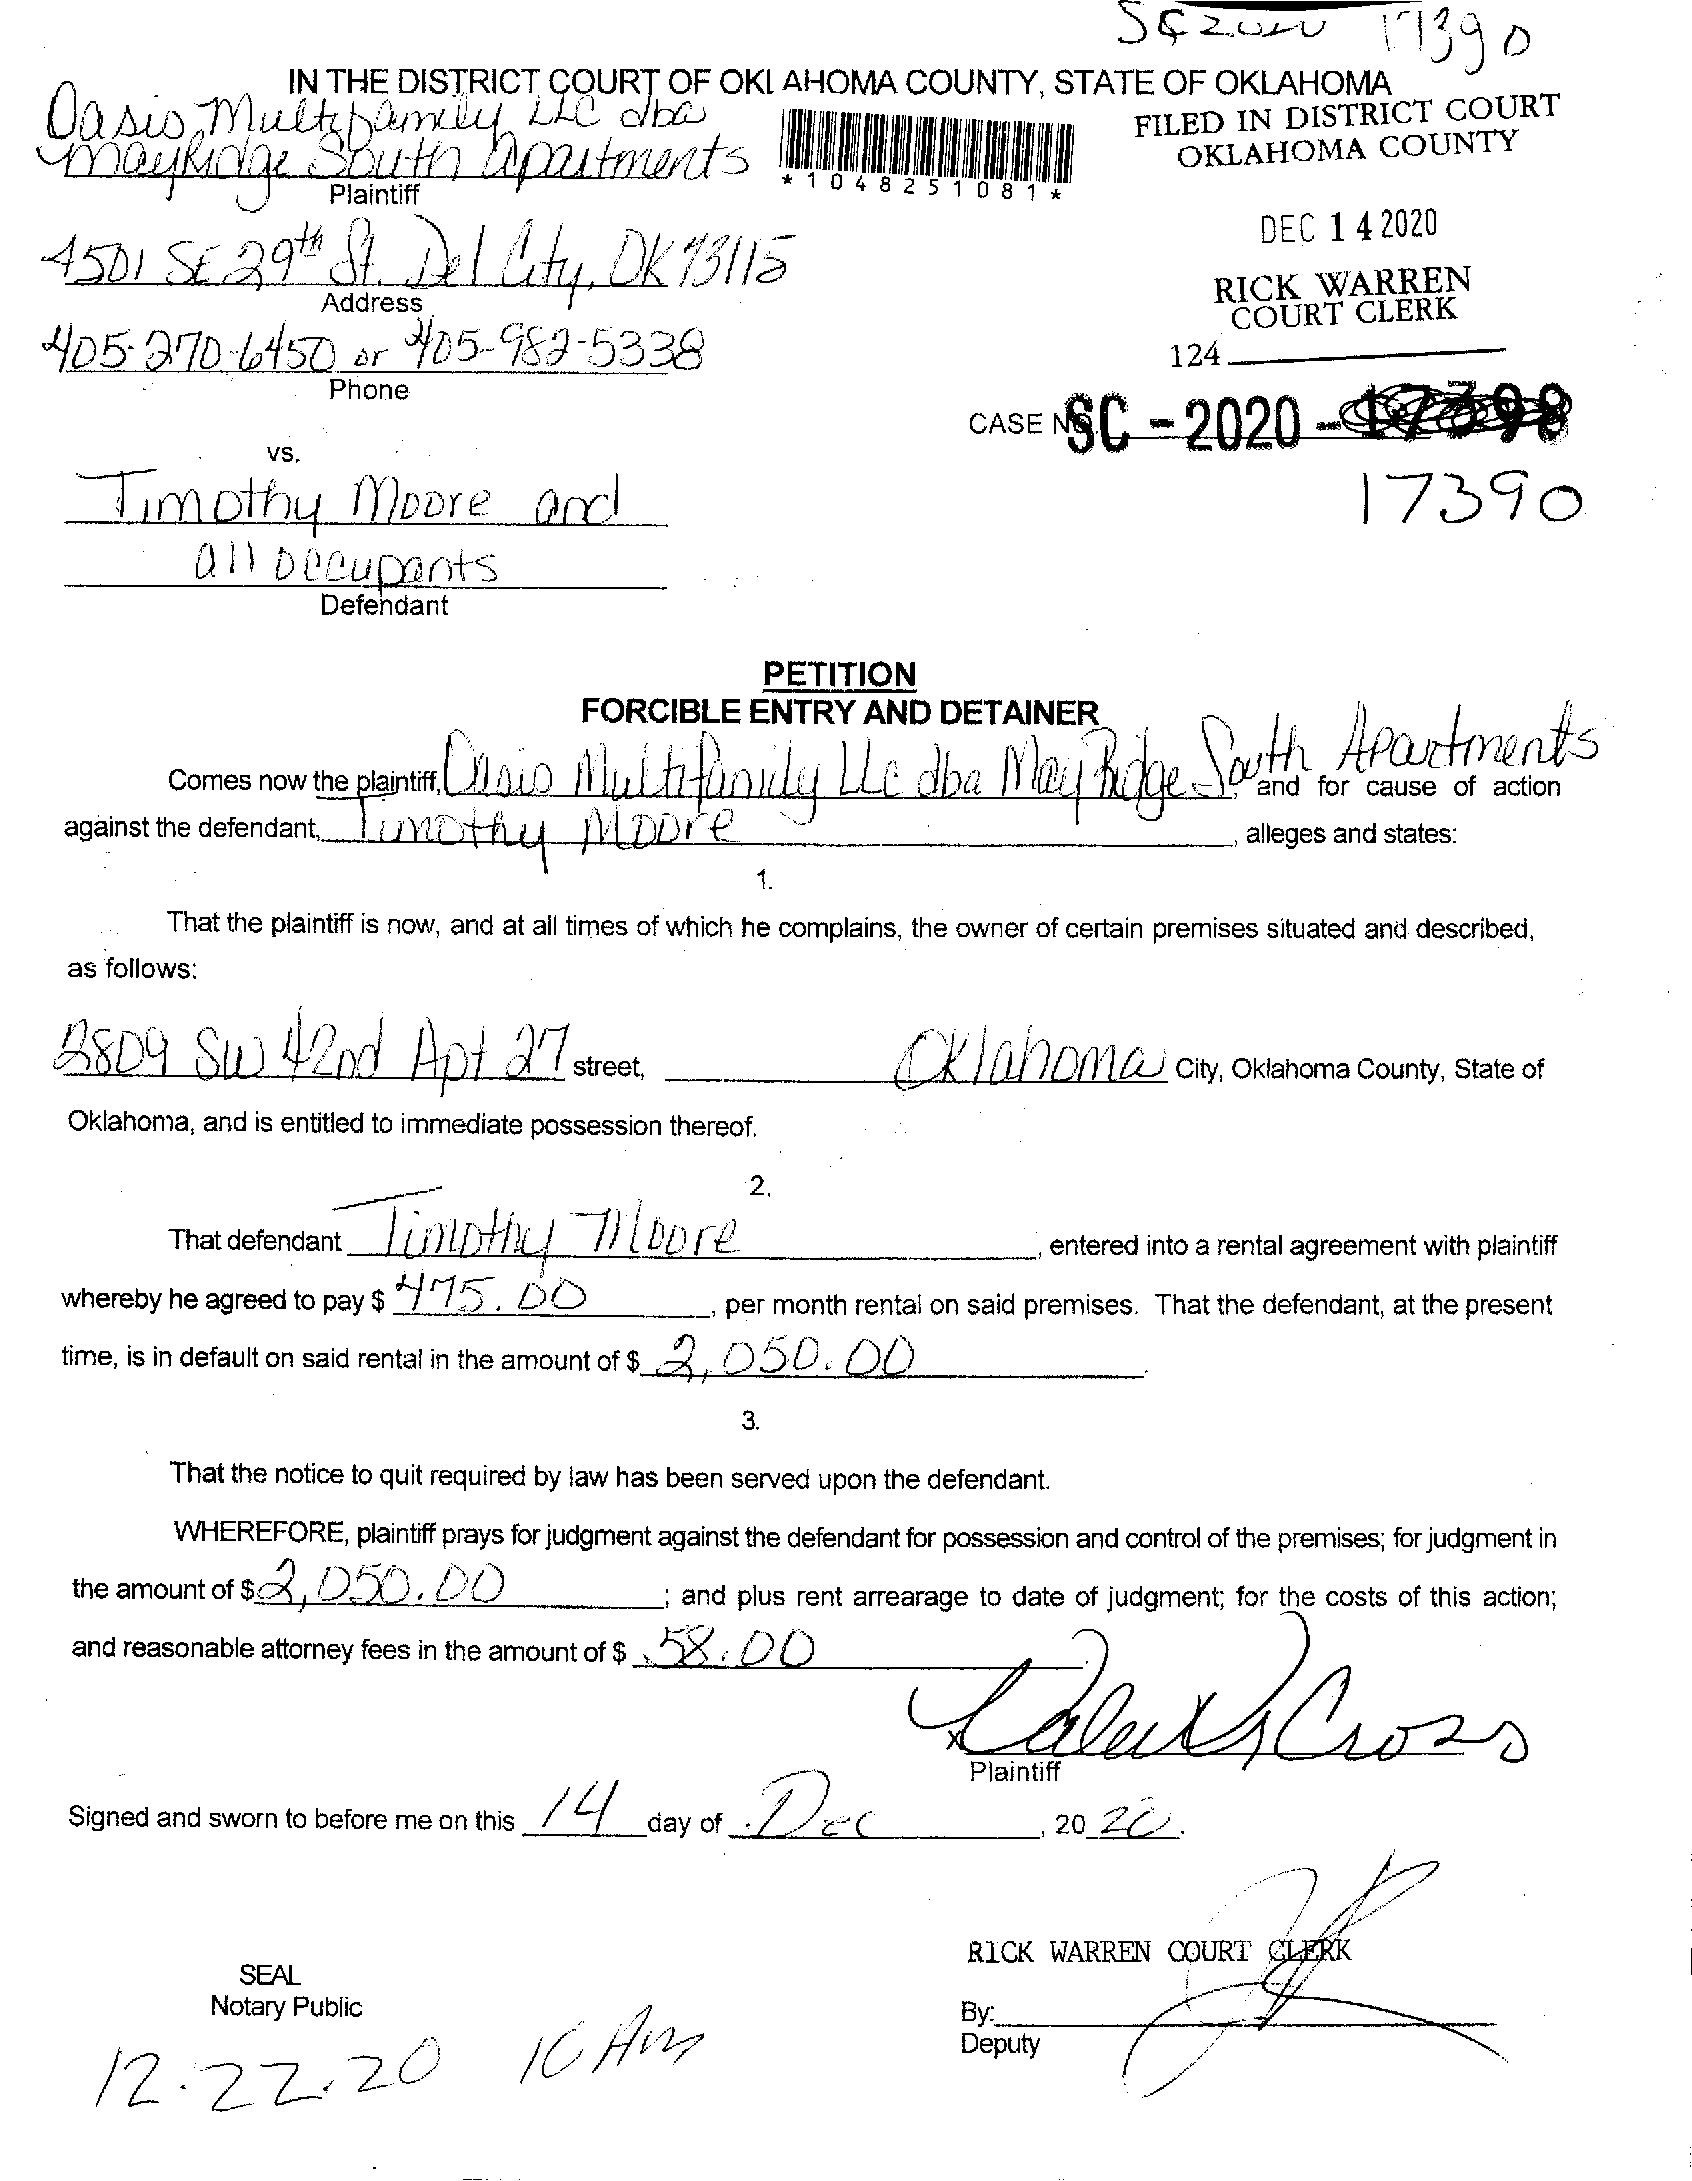 SC2020 17390
IN THE DISTRICT COURT OF OKLAHOMA COUNTY, STATE OF OKLAHOMA
Oasis Multifamily LLC dba
MayRidge South Apartments
Plaintiff
*1048251081*
FILED IN DISTRICT COURT
OKLAHOMA COUNTY
DEC 14 2020
RICK WARREN
COURT CLERK
124
4501 SE 29th St. Del City, OK 73115
Address
405-270-6450 or 405-982-5338
Phone
CASE NO. SC-2020-17398
17390
vs.
Timothy Moore and
all occupants
Defendant
PETITION
FORCIBLE ENTRY AND DETAINER
Comes now the plaintiff, Oasis Multifamily LLc dba May Ridge South Apartments and for cause of action
against the defendant, Timothy Moore, alleges and states:
1.
That the plaintiff is now, and at all times of which he complains, the owner of certain premises situated and described,
as follows:
2809 SW 42nd Apt 27 street, Oklahoma City, Oklahoma County, State of
Oklahoma, and is entitled to immediate possession thereof.
2.
That defendant Timothy Moore, entered into a rental agreement with plaintiff
whereby he agreed to pay $ 475.00, per month rental on said premises. That the defendant, at the present
time, is in default on said rental in the amount of $ 2,050.00.
3.
That the notice to quit required by law has been served upon the defendant.
WHEREFORE, plaintiff prays for judgment against the defendant for possession and control of the premises; for judgment in
the amount of $ 2,050.00; and plus rent arrearage to date of judgment; for the costs of this action;
and reasonable attorney fees in the amount of $ 58.00
x Cross
Plaintiff
Signed and sworn to before me on this 14 day of Dec, 2020.
RICK WARREN COURT CLERK
SEAL
Notary Public
By:
Deputy
12.22.20 10 AM